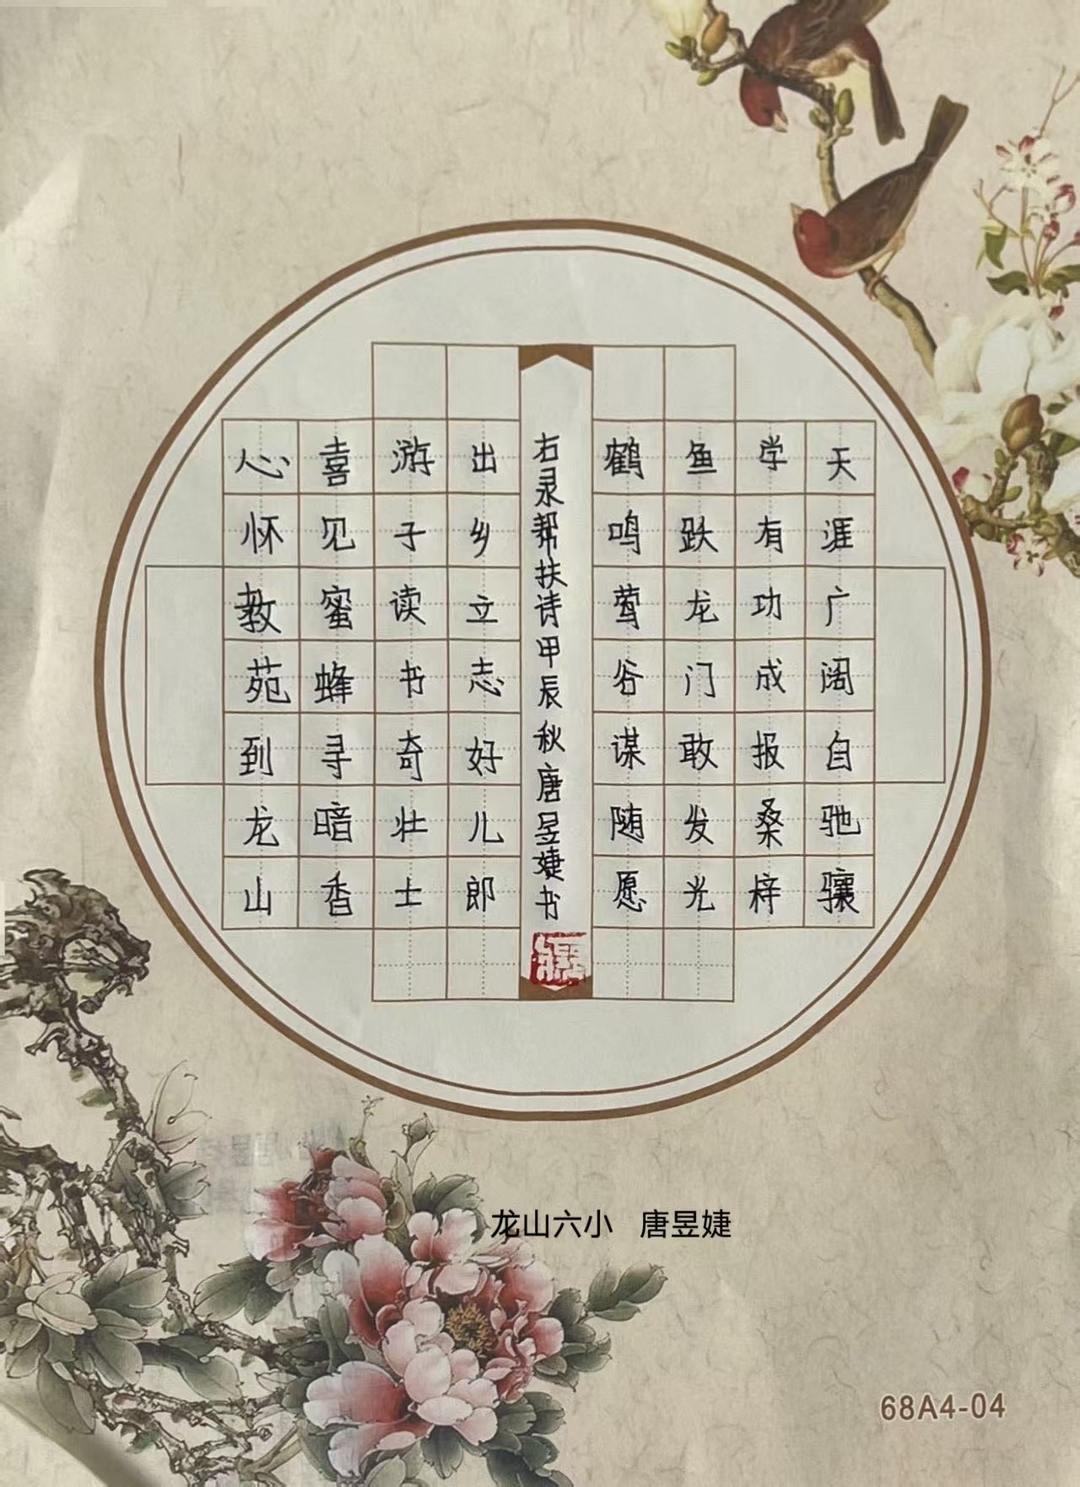 天涯广阔自驰骧
学有功成报桑梓
鱼跃龙门敢发光
鹤鸣莺谷谋随愿
右录帮扶诗甲辰秋唐昱婕书
出乡立志好儿郎
游子读书奇壮士
喜见蜜蜂寻暗香
心怀教苑到龙山
龙山六小 唐昱婕
68A4-04